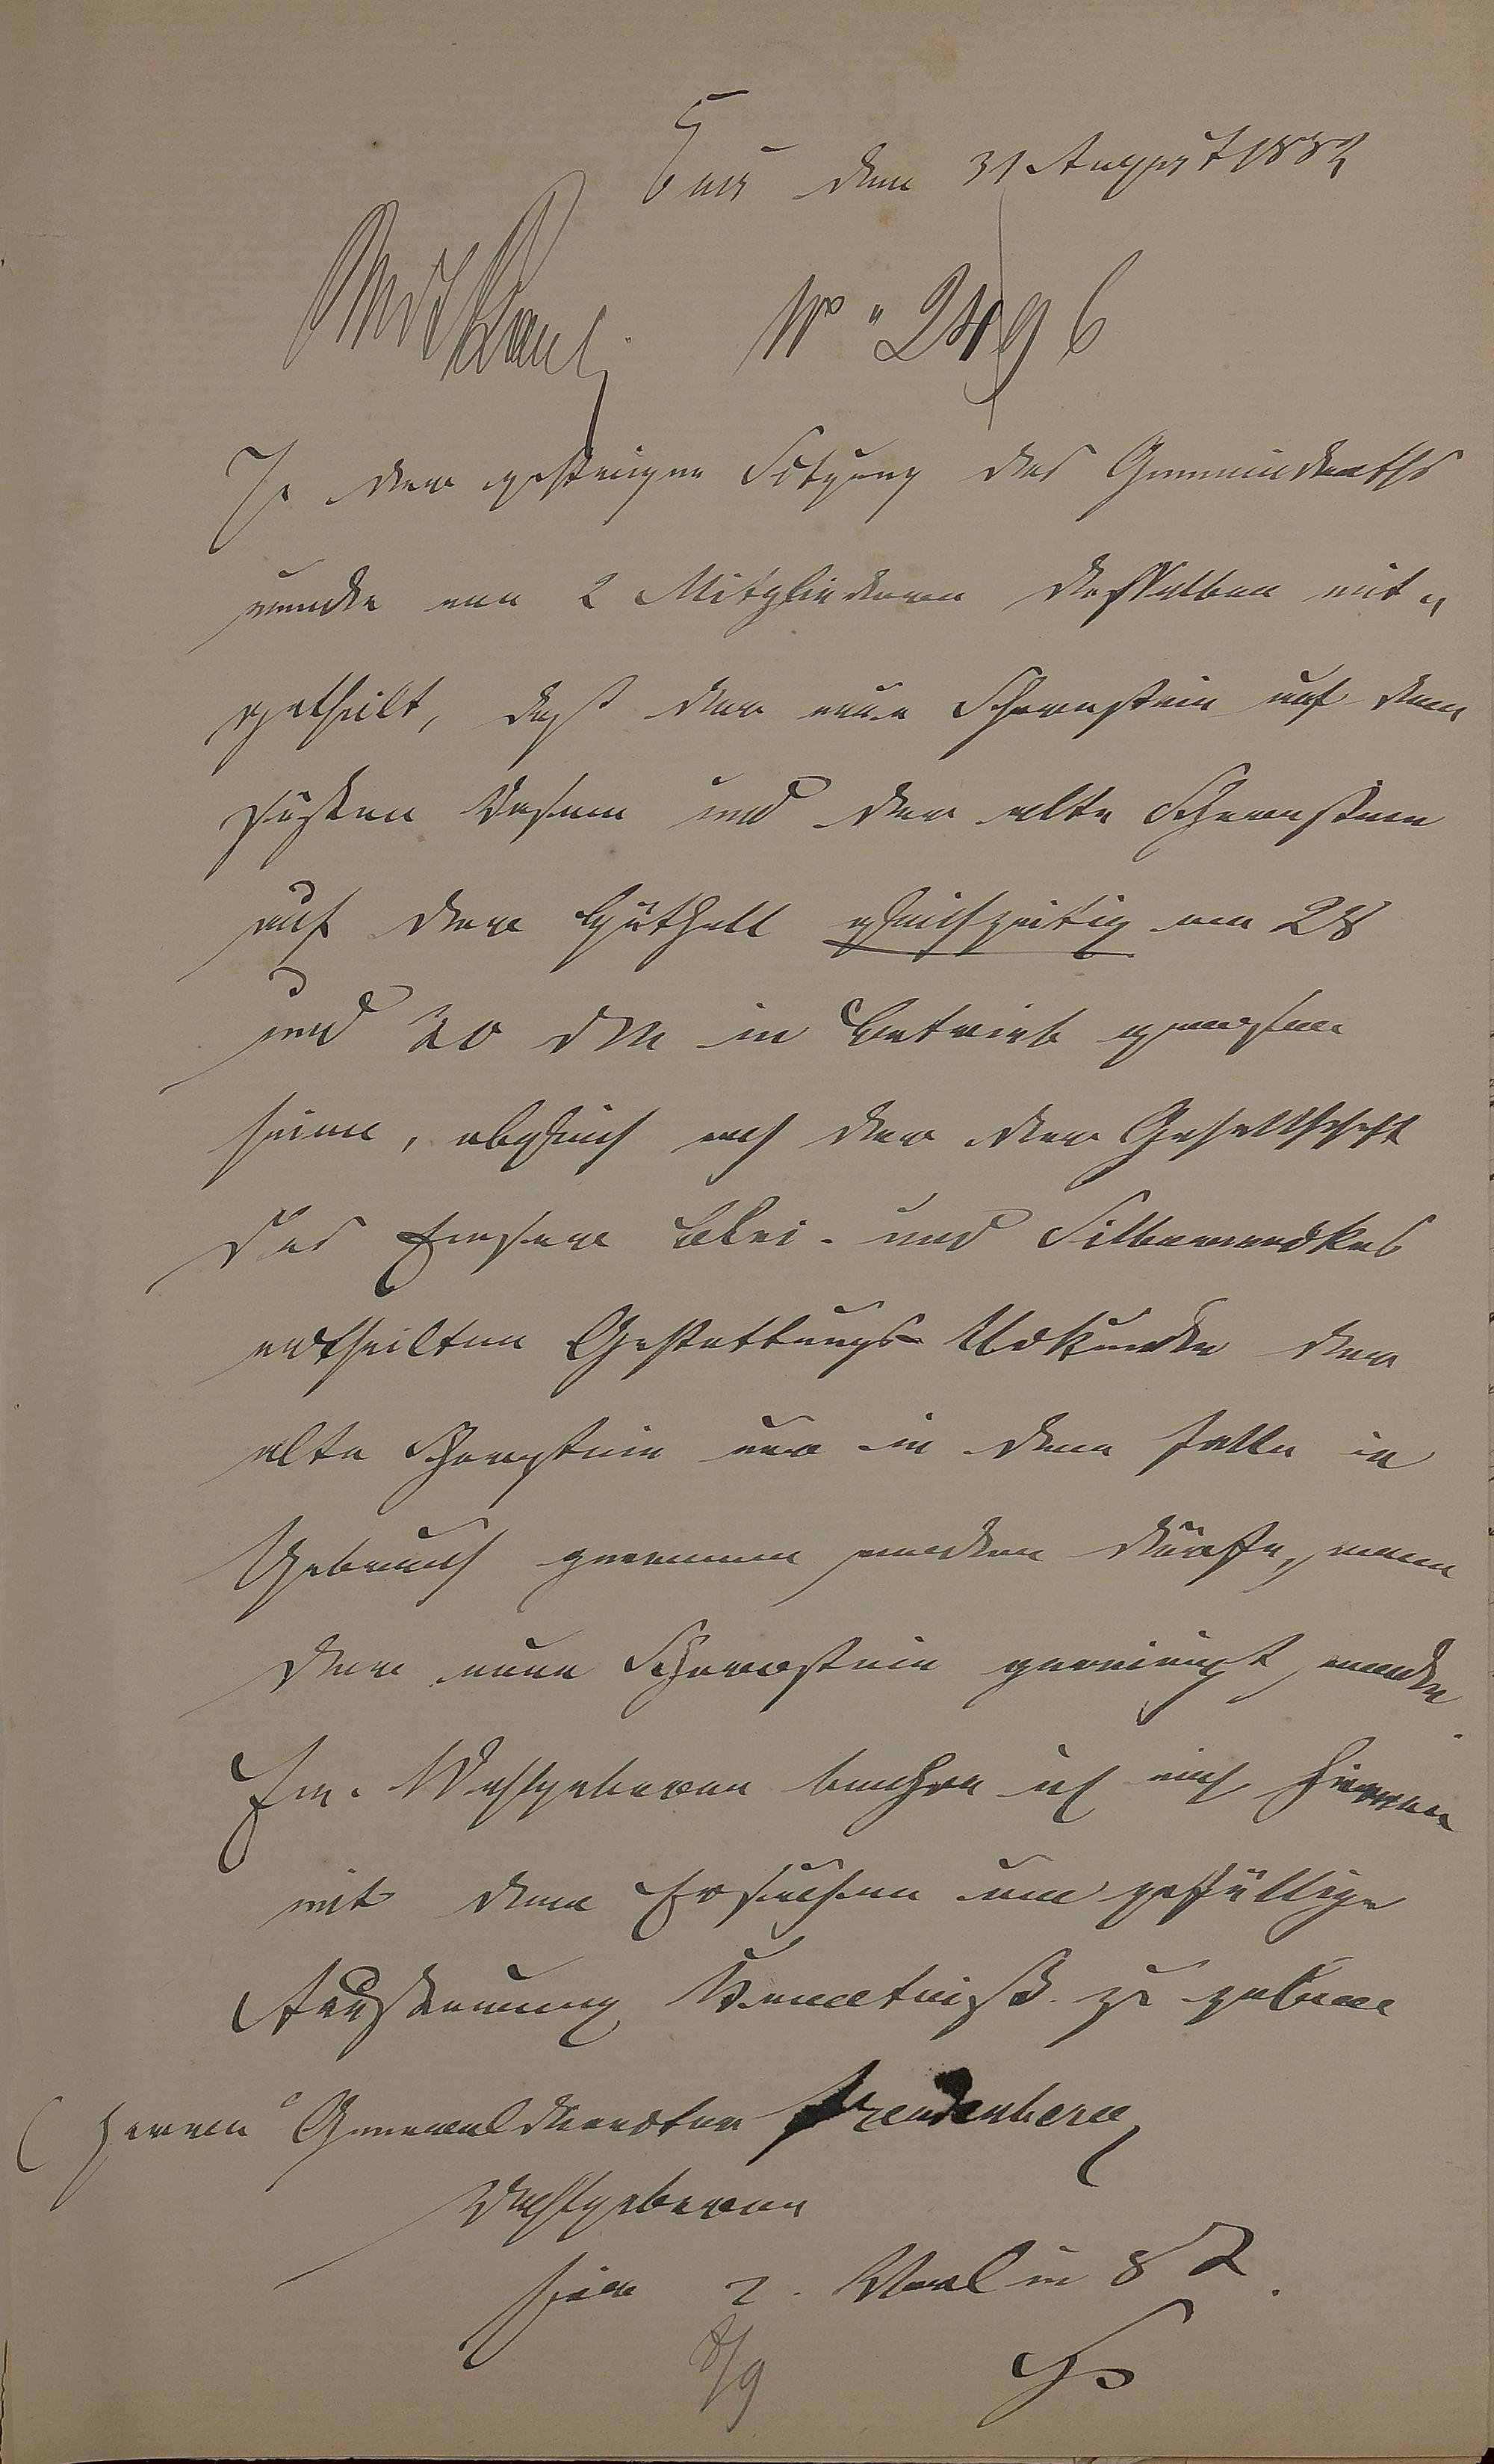 Ems den 31 August 1882
No " 2496
In der gestrigen Sitzung des Gemeinderaths
wurde von 2 Mitgliedern desselben mit„
getheilt, daß der neue Schornstein auf dem
und der alte Schornstein
auf der gleichzeitig am 28
und 30 d M in Betrieb gewesen
seien, obgleich nach der der Gesellschaft
des Emser Blei- und Silberwerkes
ertheilten Gestattungs-Urkunde der
alte Schornstein nur in dem Falle in
Gebrauch genommen werden dürfte, wenn
der neue Schornstein gereinigt werde.
Ew. Wohlgeboren beehre ich mich hiervon
mit dem Ersuchen um gefällige
Kenntniß zu geben
Herrn Generaldirector Freudenberg
Wohlgeboren
hier 2. 8 T.
8/9